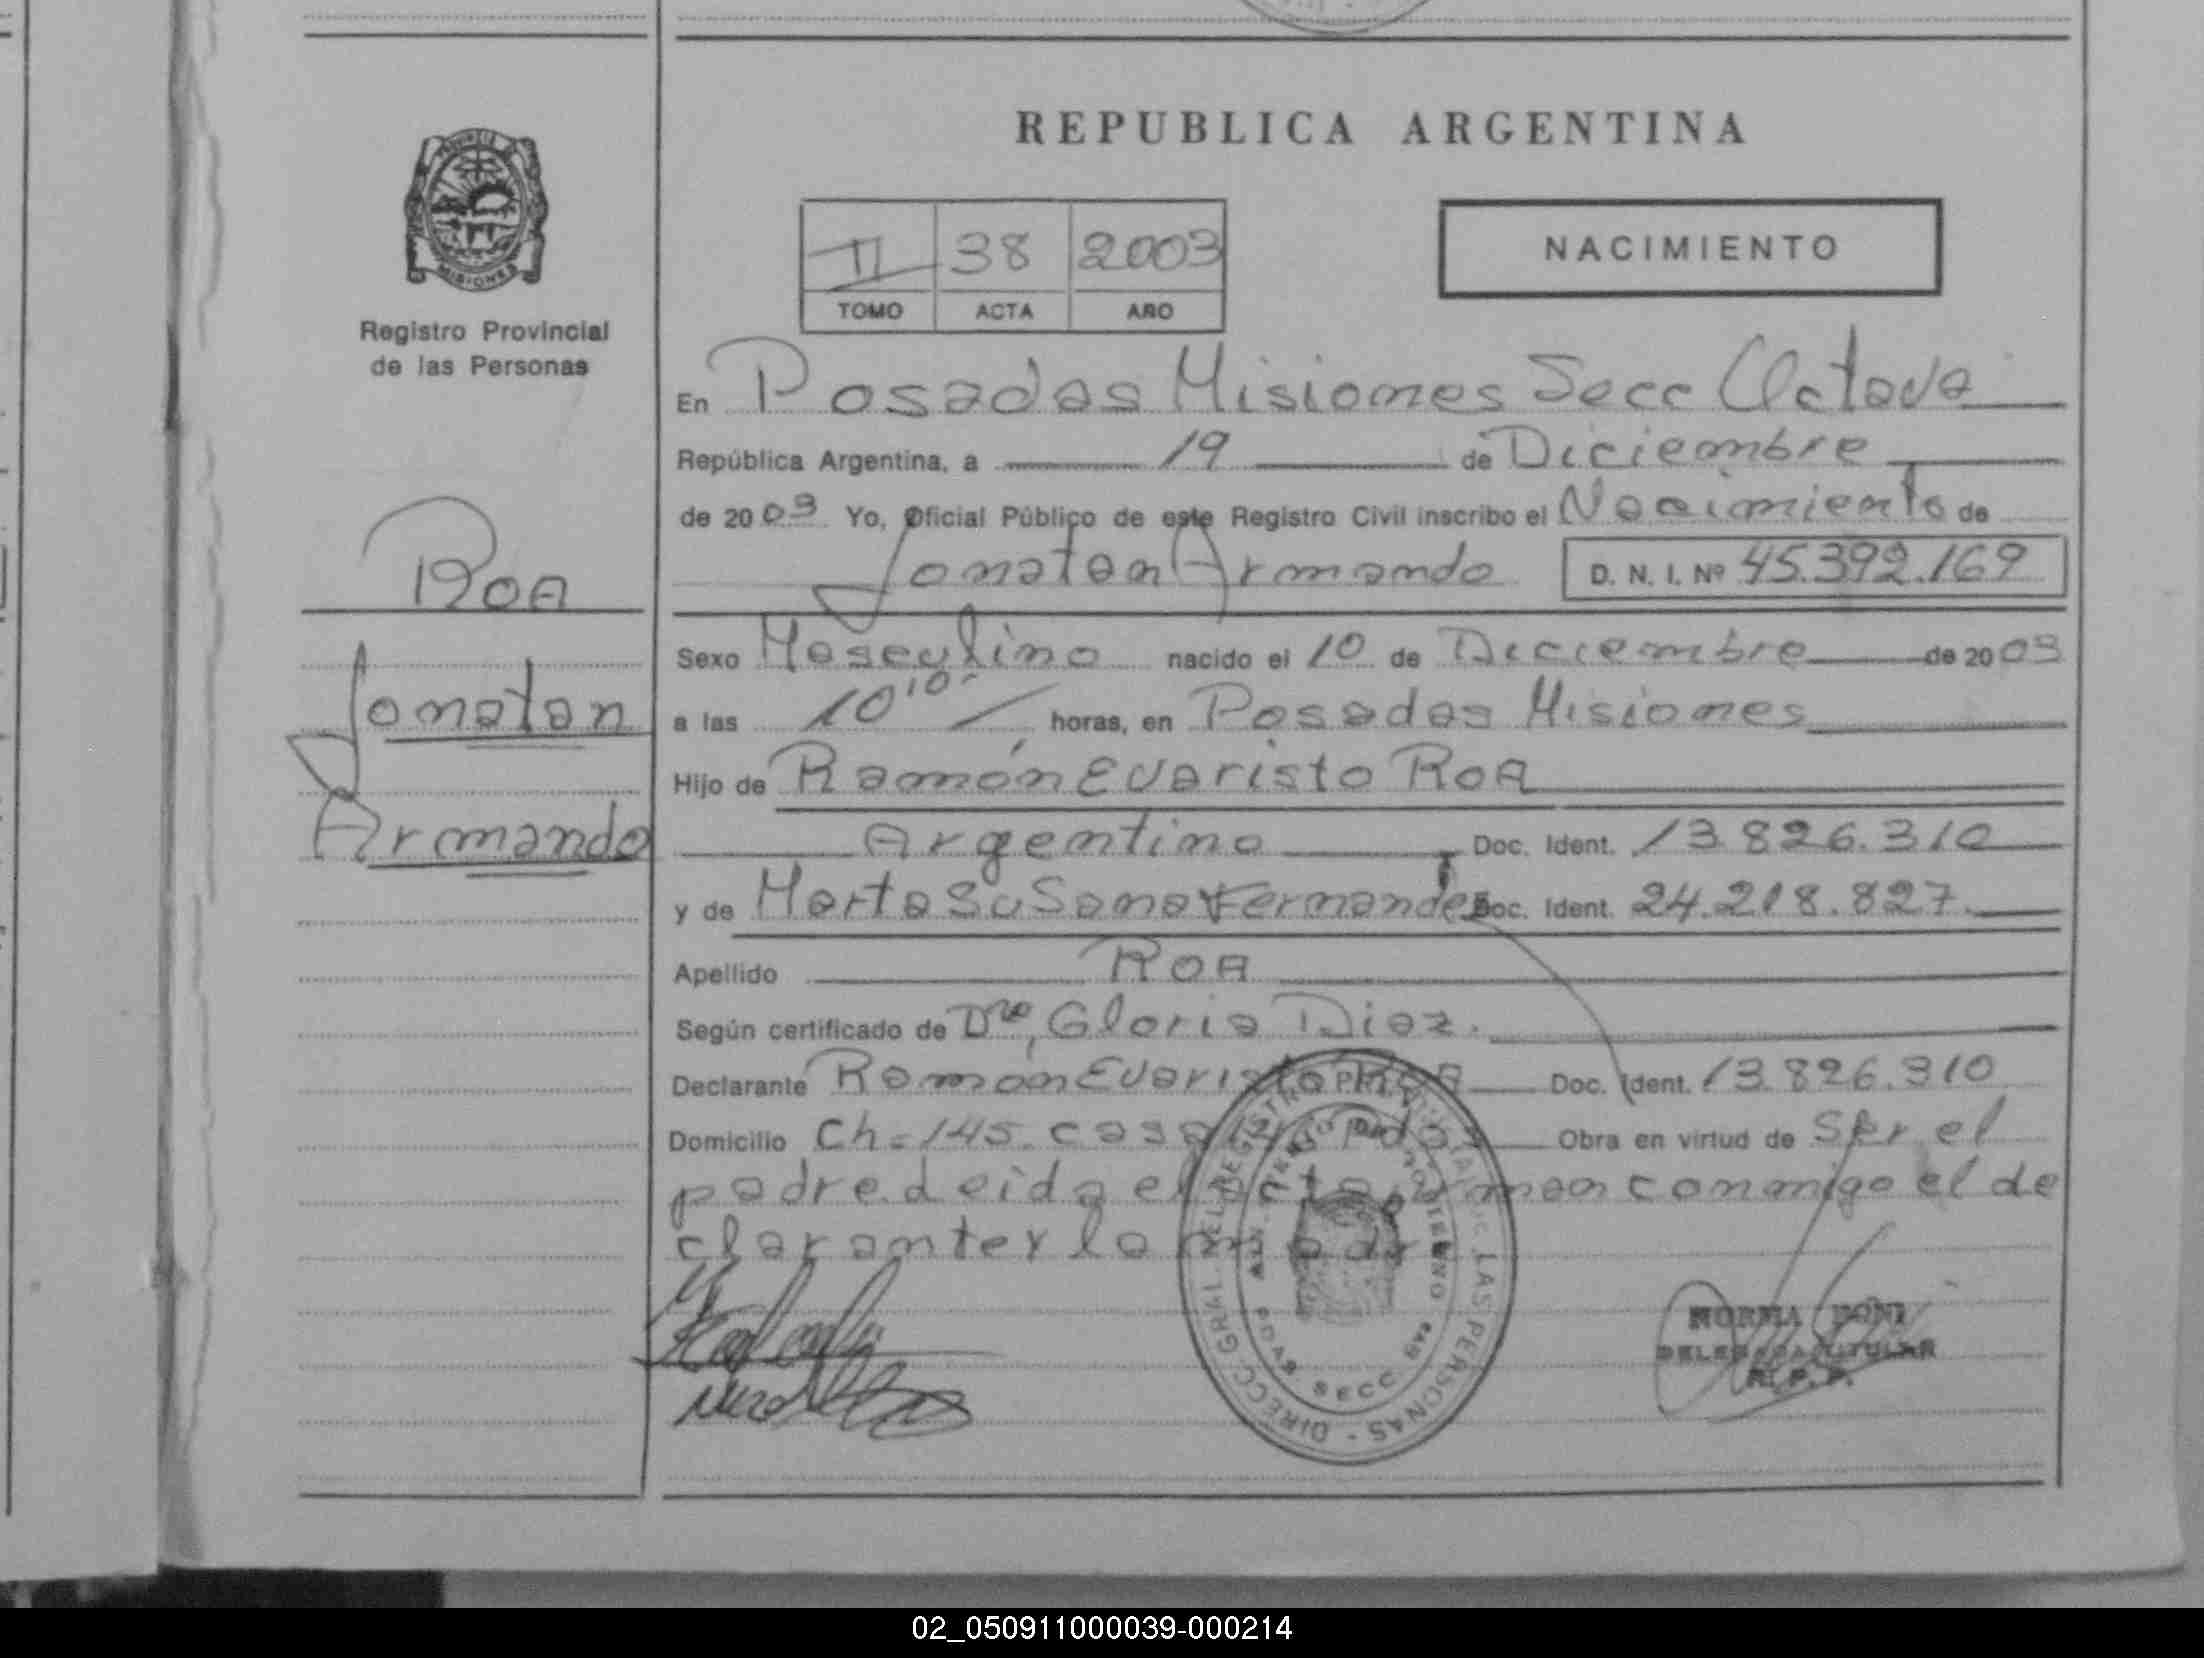 REPUBLICA ARGENTINA
PROVINCIA DE MISIONES
Registro Provincial
de las Personas
II 38 2003
TOMO ACTA AÑO
NACIMIENTO
En Posadas Misiones Secc Octava
República Argentina, a 19 de Diciembre
de 2003 Yo, Oficial Público de este Registro Civil inscribo el Nacimiento de
Jonatan Armando D. N. I. Nº 45.392.169
ROA
Jonatan
Armando
Sexo Masculino nacido el 10 de Diciembre de 2003
a las 10 10 horas, en Posadas Misiones
Hijo de Ramón Evaristo ROA
Argentino Doc. Ident. 13.826.310
y de Marta Susana Fernandez Doc. Ident. 24.218.827
Apellido ROA
Según certificado de Dra, Gloria Diaz.
Declarante Ramón Evaristo ROA Doc. Ident. 13.826.310
Domicilio Ch=145. casa Pdas Obra en virtud de Ser el
padre. Leida el acta firman conmigo el de
clarante y la madre
DIRECC GRAL DEL REGISTRO PROVINCIAL DE LAS PERSONAS
PDAS. SECC 8va
NORMA BONI
DELEGADA TITULAR
R. P. P.
02_050911000039-000214